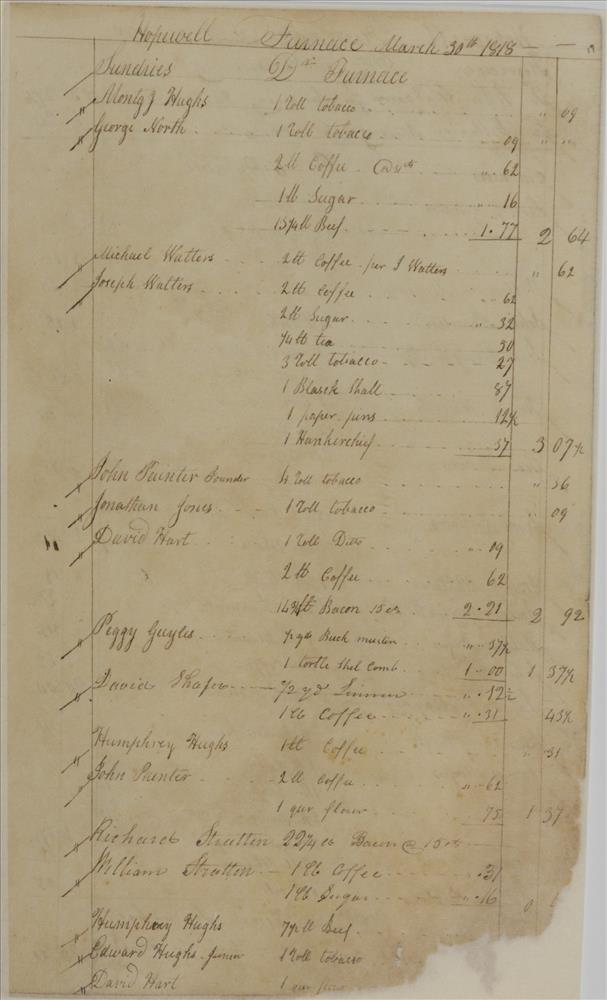 Hopewell Furnace March 30th 1818 —
Sundries Dr Furnace
Hughs 1 Roll tobacco " 09
George North 1 Roll tobacco 09 " "
2 lb Coffee " 62
1 lb Sugar " 16
15¾ lb Beef 1.77 2 64
Michael Watters 2 lb Coffee per J Watters " 62
Joseph Watters 2 lb Coffee " 62
2 lb Sugar 32
¼ lb tea 50
3 Roll tobacco 27
1 Black Shall 87
1 paper pins 12½
1 Hankerchief 37 3 07½
John Painter Pounder 4 Roll tobacco " 36
Jonathan Jones 1 Roll tobacco 09
David Hart 1 Roll Ditto " 09
2 lb Coffee 62
14¾ lb Bacon 15 cs 2.21 2 92
Peggy Guyles ½ yd Buck muslin " 37½
1 tortle Shel Comb 1.00 1 37½
David Shafer ½ yd Linnen " 12½
1 lb Coffee " 31 43½
Humphrey Hughs 1 lb Coffee " 31
John Painter 2 lb Coffee " 62
1 qur flour 75 1 37
Richard Stratten 22¾ lb Bacon @ 15 cs
William Stratten 1 lb Coffee .31
1 lb Sugar " .16 0
Humphrey Hughs 7½ lb Beef
Edward Hughs Junior 1 Roll tobacco
David Hart 1 qur